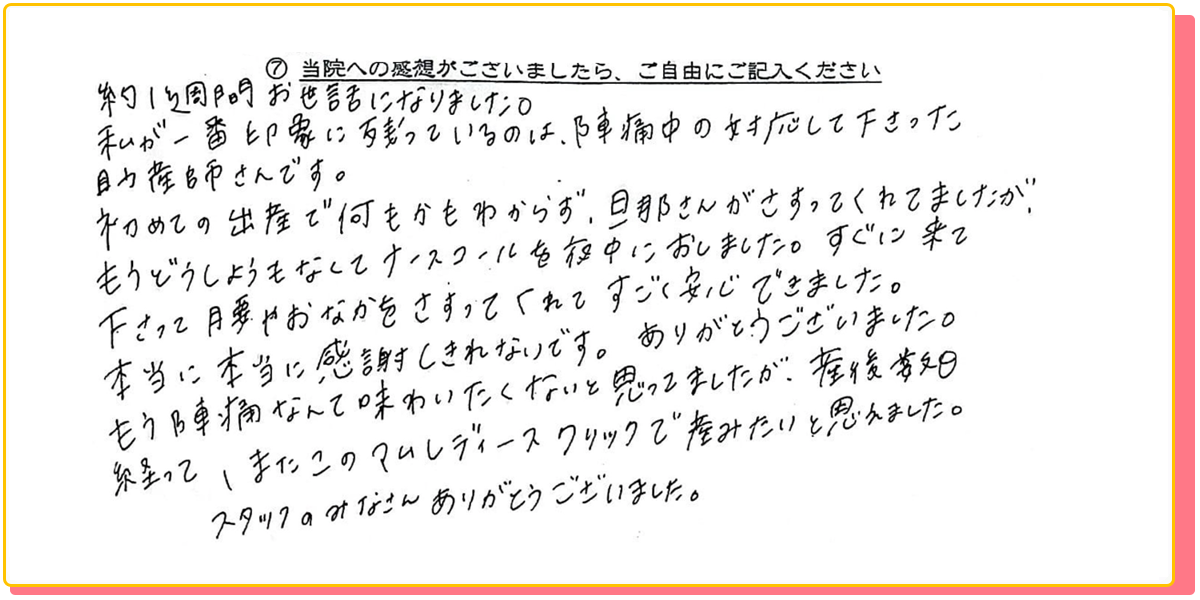 ⑦ 当院への感想がございましたら、ご自由にご記入ください
約1週間お世話になりました。
私が一番印象に残っているのは、陣痛中の対応して下さった
助産師さんです。
初めての出産で何もかもわからず、旦那さんがさすってくれてましたが、
もうどうしようもなくてナースコールを夜中におしました。すぐに来て
下さって腰やおなかをさすってくれてすごく安心できました。
本当に本当に感謝しきれないです。ありがとうございました。
もう陣痛なんて味わいたくないと思ってましたが、産後数日
経って、またこのマムレディースクリックで産みたいと思えました。
スタッフのみなさんありがとうございました。